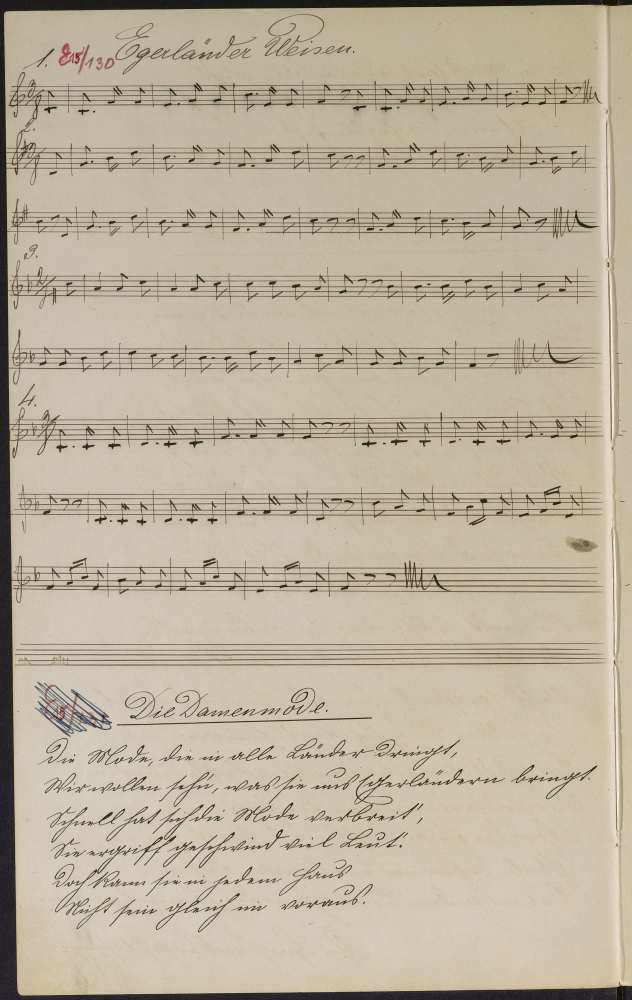 1. E15/130 Egerländer Weisen.
3.
4.
Die Damenmode.
Die Mode, die in alle Länder dringt,
Wir wollen seh'n, was sie uns Egerländern bringt.
Schnell hat sich die Mode verbreit',
Sie ergriff geschwind viel Leut'.
Doch kann sie in jedem Haus
Nicht sein gleich im voraus.